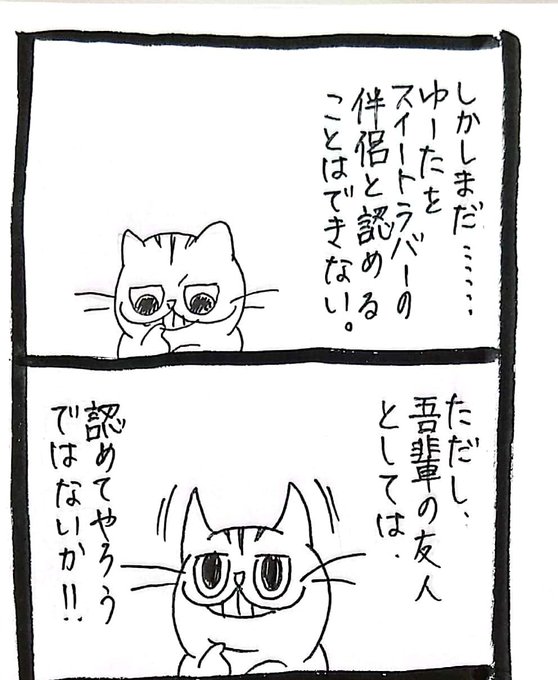 しかしまだ……
ゆーたを
スイートラバーの
伴侶と認める
ことはできない。
ただし、
吾輩の友人
としては
認めてやろう
ではないか!!